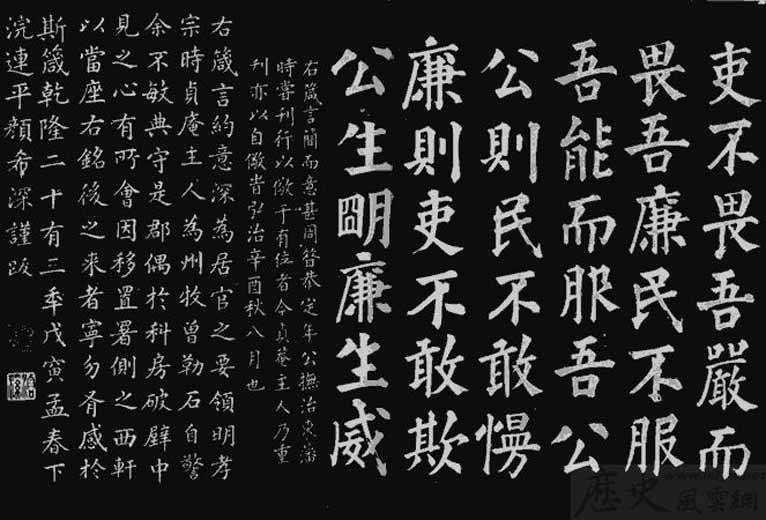 吏不畏吾嚴而
畏吾廉民不服
吾能而服吾公
公則民不敢慢
廉則吏不敢欺
公生朙廉生威
右箴言簡而意甚周昔恭定年公撫治東藩
時嘗刊行以儆于有位者今貞菴主人乃重
刊亦以自儆旹弘治辛酉秋八月也
右箴言約意深為居官之要領明孝
宗時貞庵主人為州牧曾勒石自警
余不敏典守是郡偶於科房破壁中
見之心有所會因移置署側之西軒
以當座右銘後之来者寧勿胥感於
斯箴乾隆二十有三年戊寅孟春下
浣連平顏希深謹跋
歷史風雲網